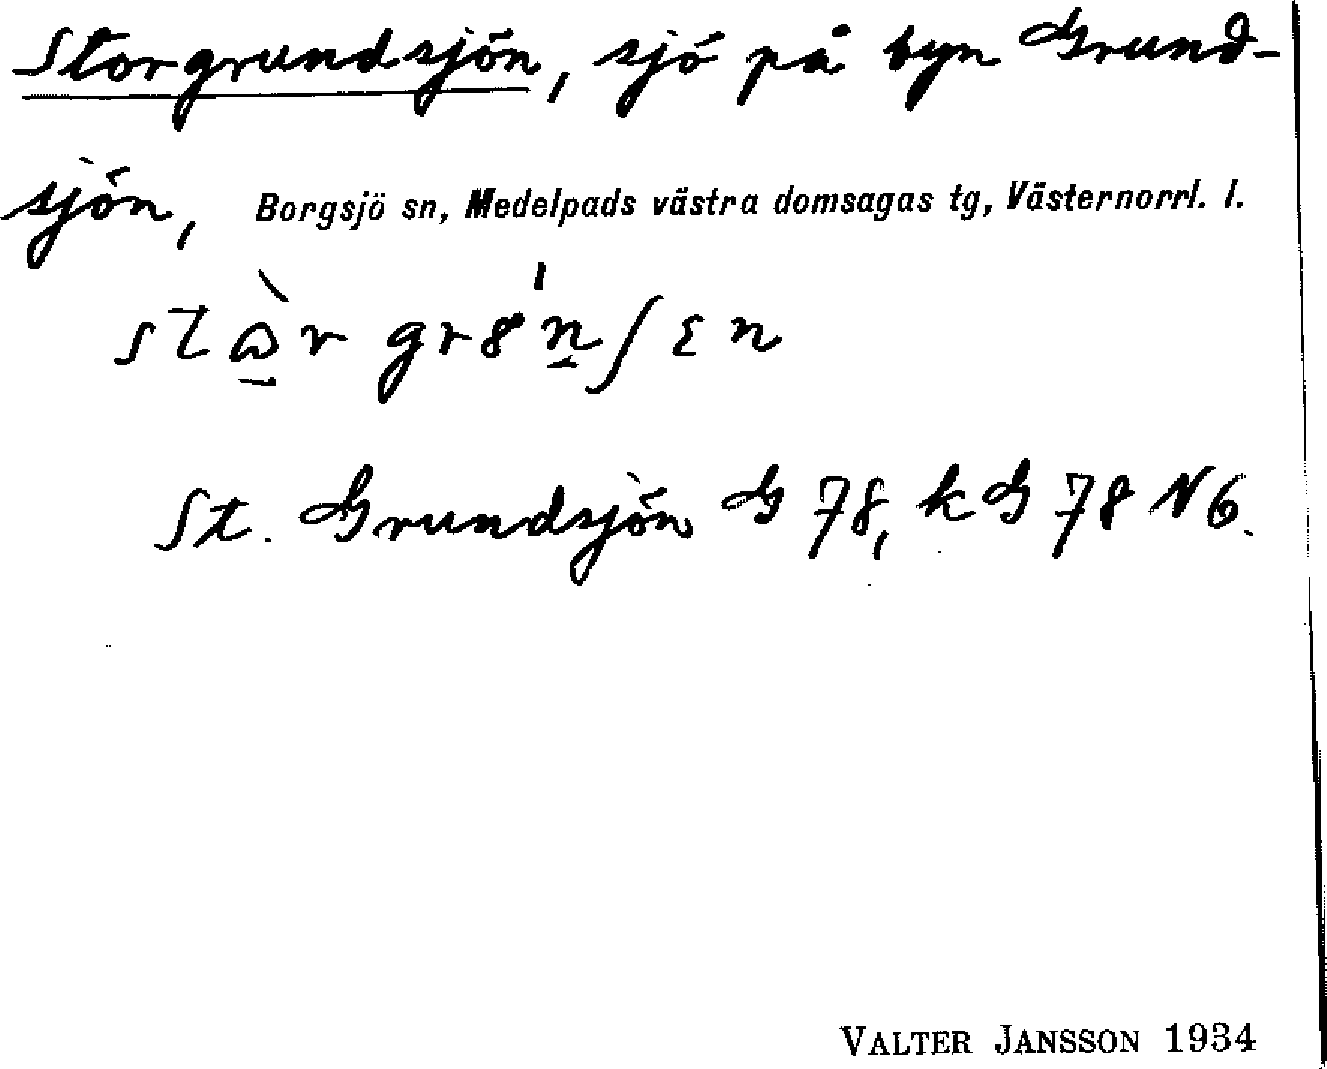 Storgrundsjön, sjö på byn Grund-
sjön, Borgsjö sn, Medelpads västra domsagas tg, Västernorrl. l.
St. Grundsjön G 78, k G 78 N 6.
VALTER JANSSON 1934